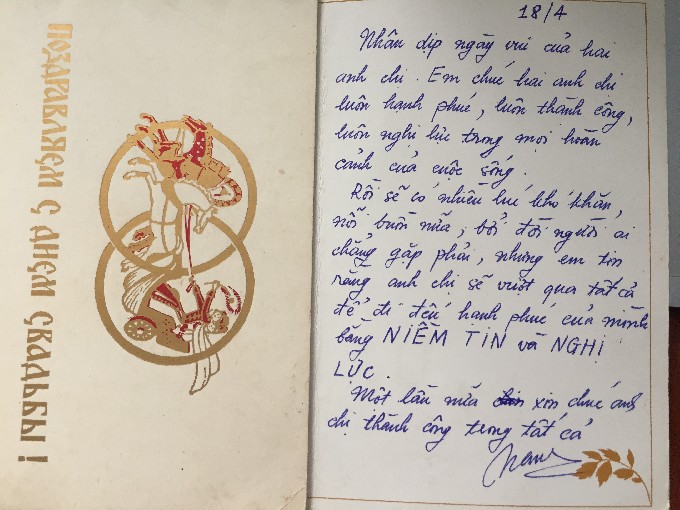 Поздравляем с днем свадьбы!
18/4
Nhân dịp ngày vui của hai
anh chị. Em chúc hai anh chị
luôn hạnh phúc, luôn thành công,
luôn nghị lực trong mọi hoàn
cảnh của cuộc sống.
Rồi sẽ có nhiều lúc khó khăn,
nỗi buồn nữa, bởi đời người ai
chẳng gặp phải, nhưng em tin
rằng anh chị sẽ vượt qua tất cả
để đi đến hạnh phúc của mình
bằng NIỀM TIN và NGHỊ
LỰC.
Một lần nữa xin chúc anh
chị thành công trong tất cả